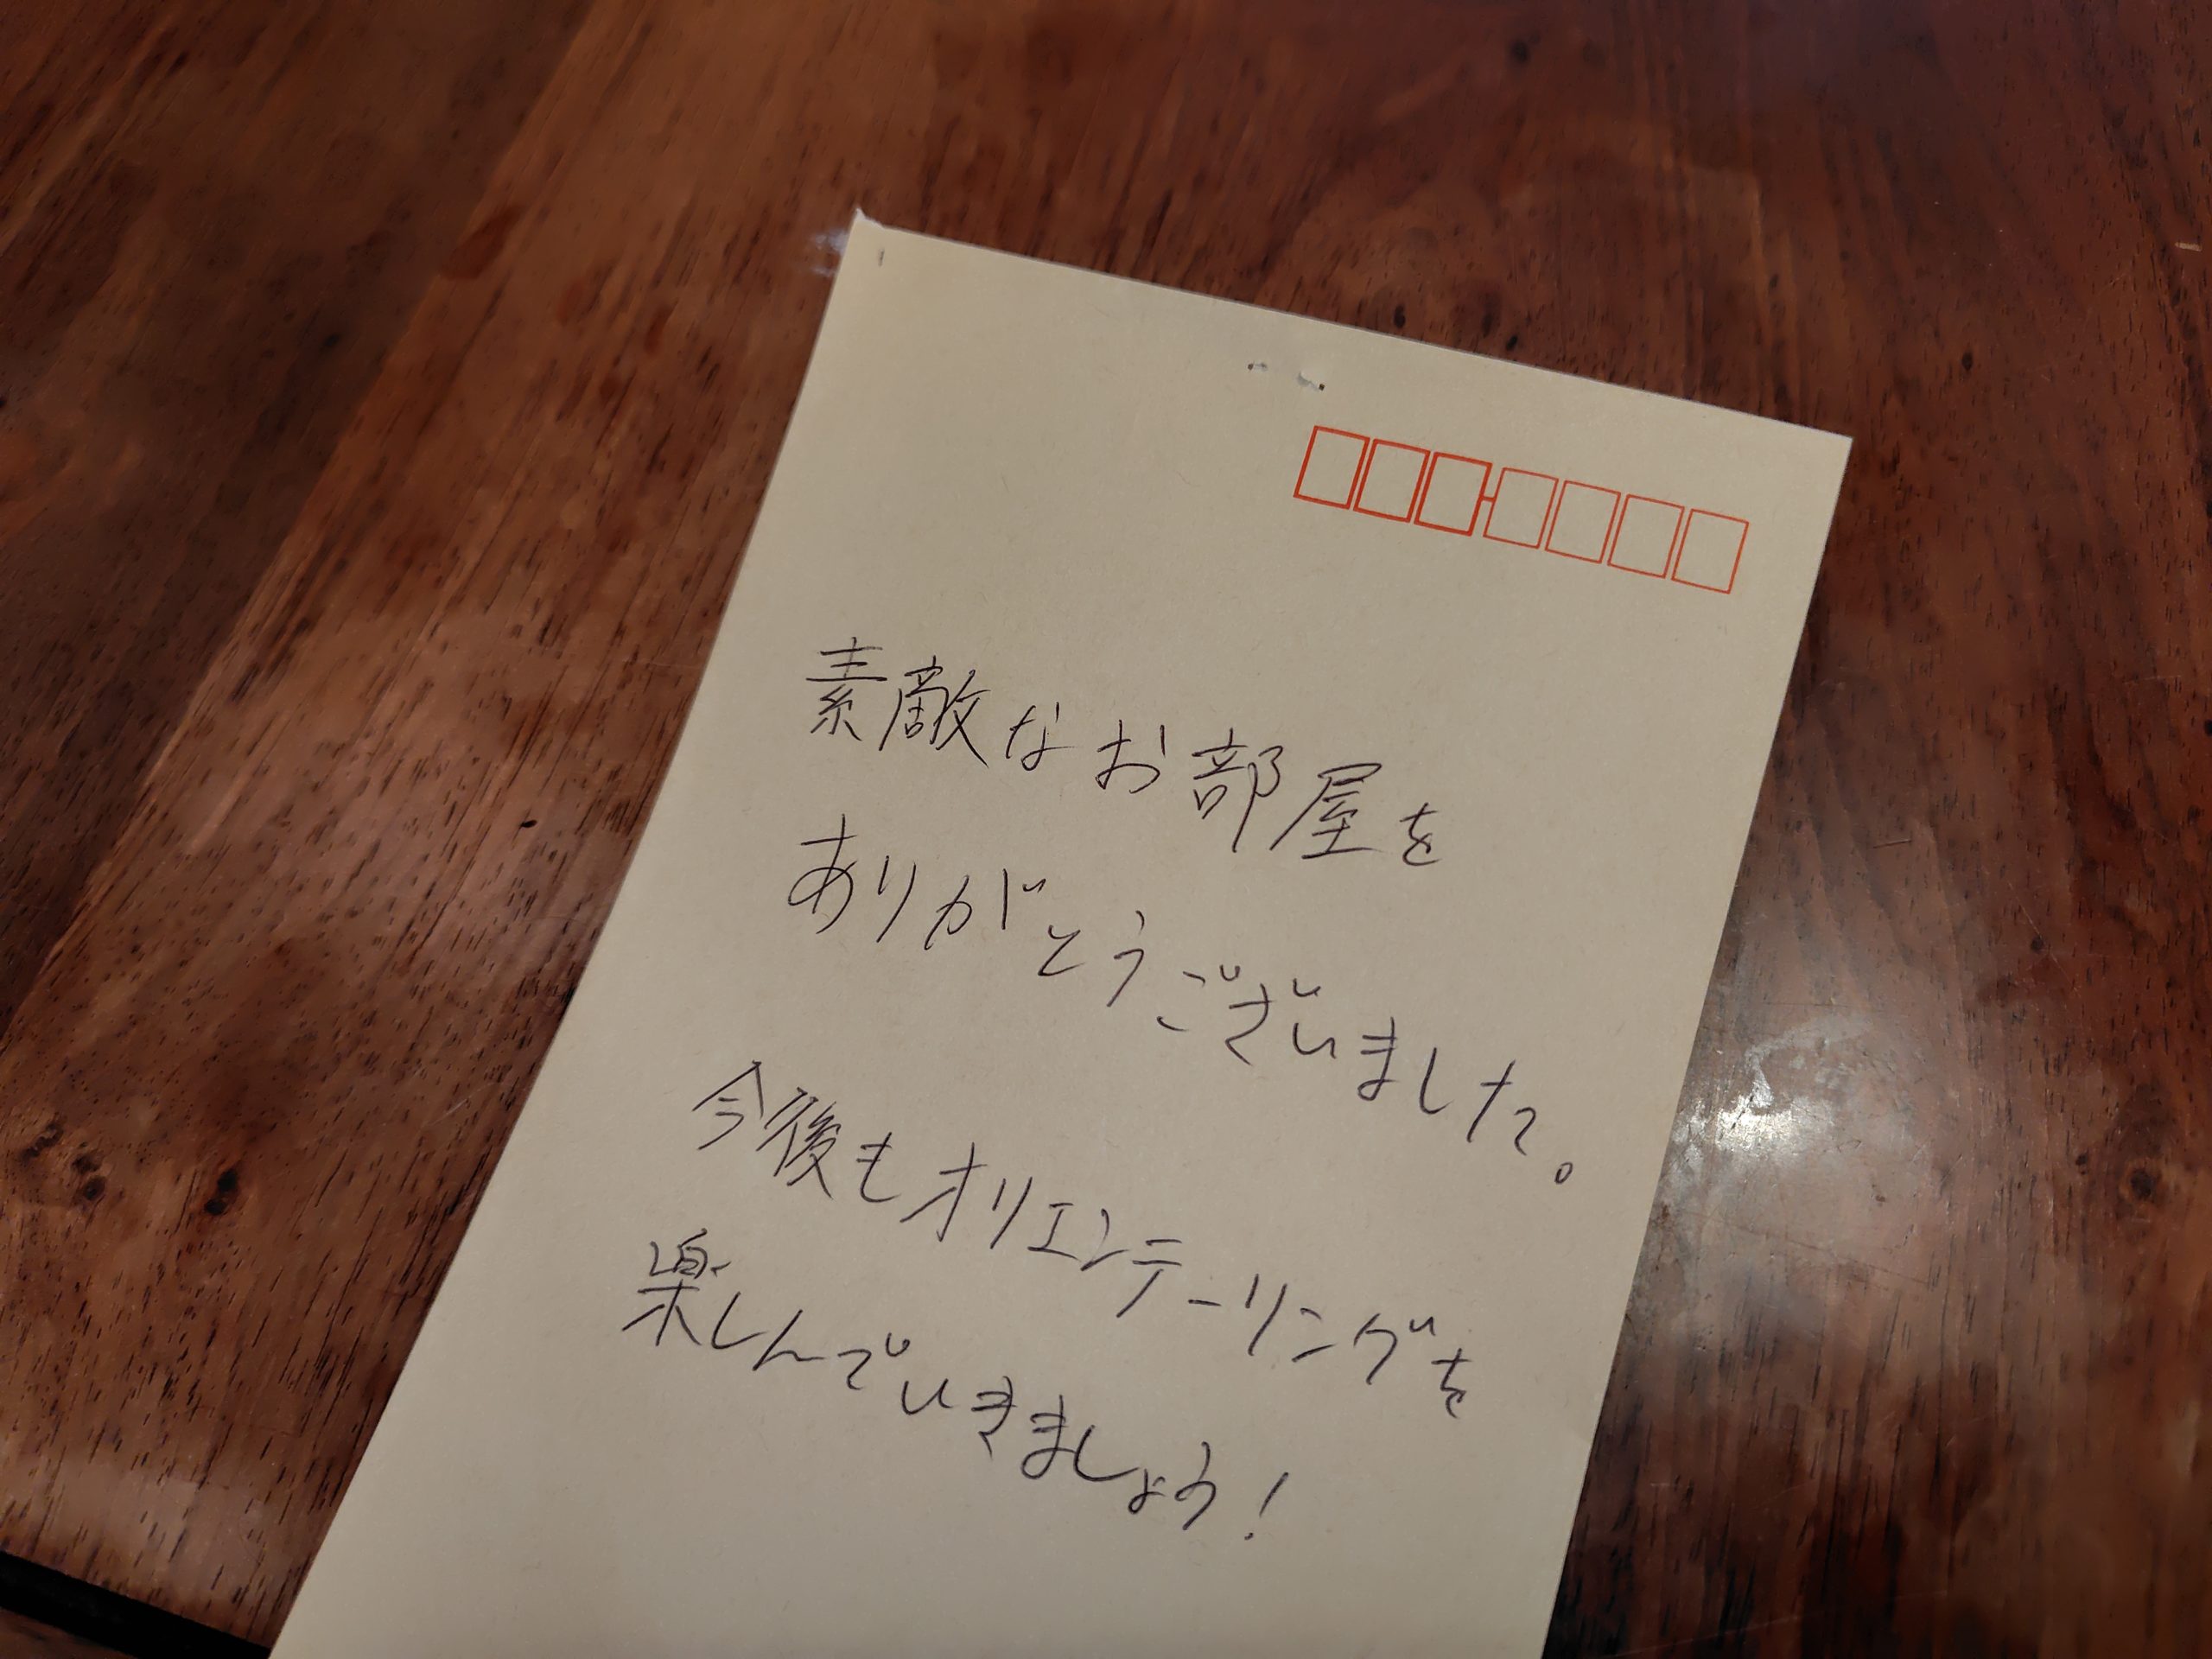 素敵なお部屋を
ありがとうございました。
今後もオリエンテーリングを
楽しんでいきましょう!